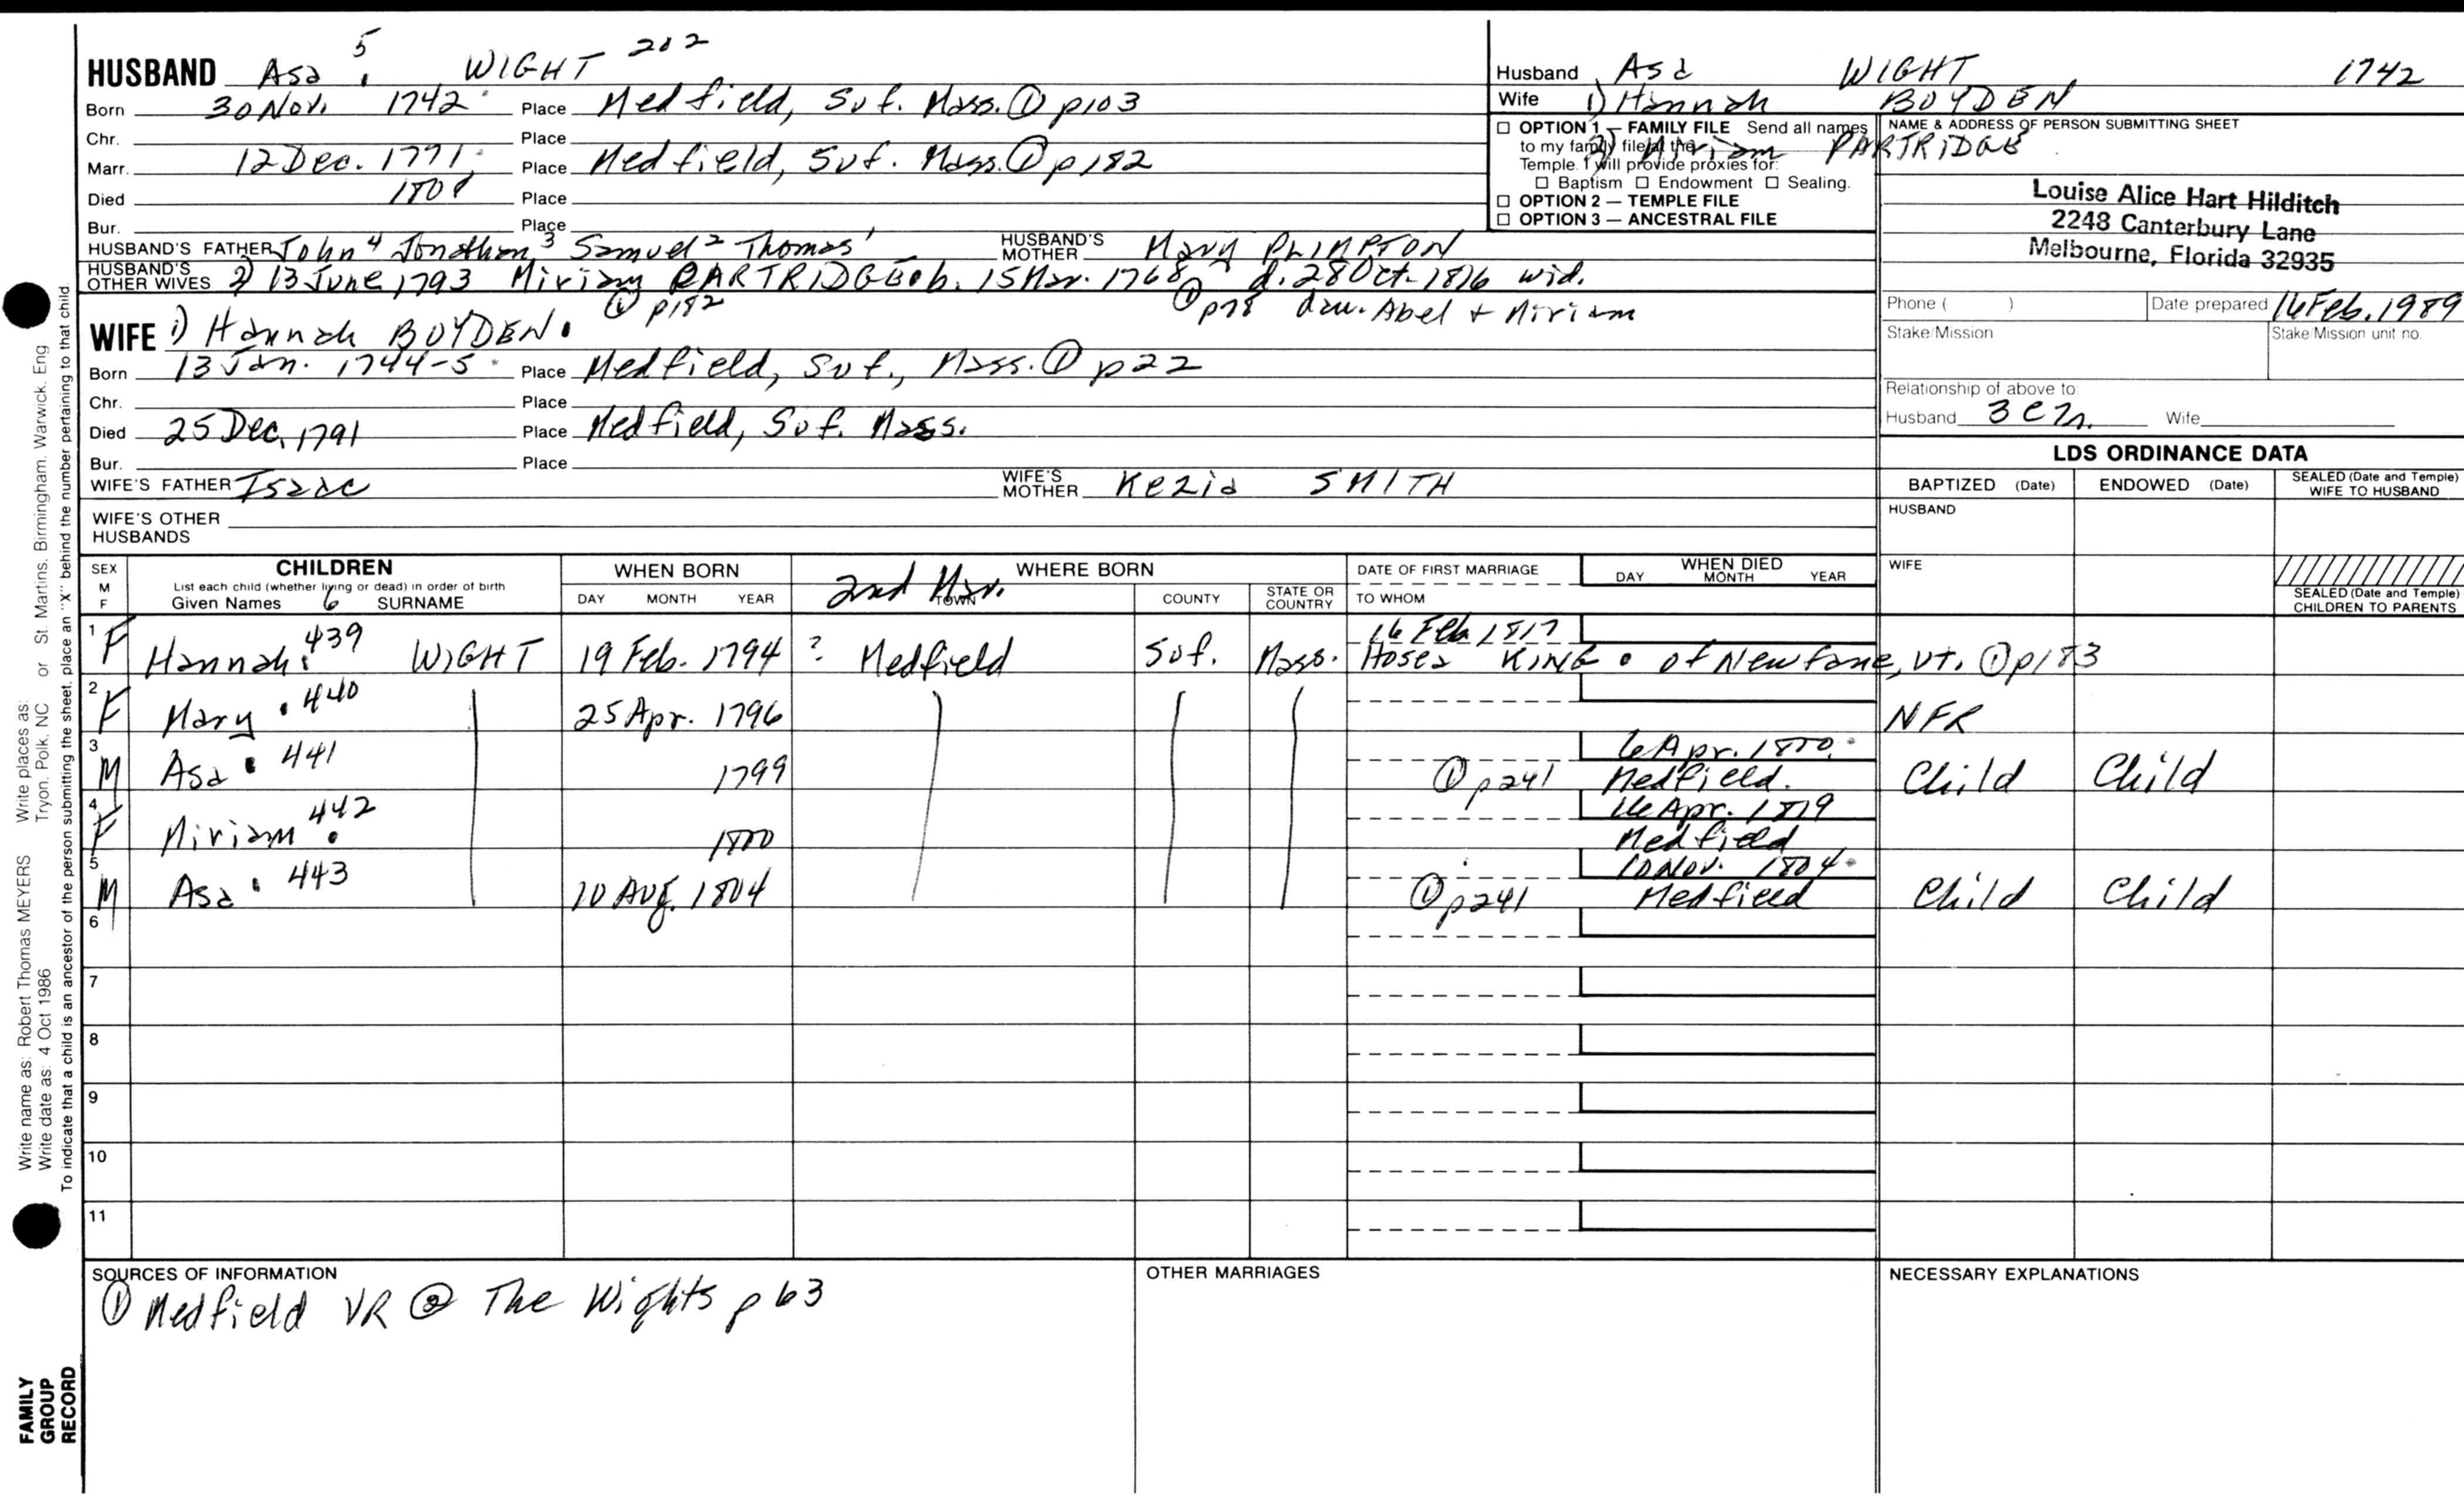 HUSBAND Asa 5 WIGHT 202
Born 30 Nov. 1742 Place Medfield, Suf. Mass. ① p103
Chr. Place
Marr. 12 Dec. 1771 Place Medfield, Suf. Mass. ① p182
Died Place
Bur. Place
HUSBAND'S FATHER John 4 Jonathan 3 Samuel 2 Thomas 1 HUSBAND'S MOTHER Mary PLIMPTON
HUSBAND'S OTHER WIVES 2) 13 June 1793 Miriam PARTRIDGE b. 15 Mar. 1768 d. 28 Oct. 1816 wid.
① p182 ① p78 dau. Abel + Miriam
WIFE 1) Hannah BOYDEN
Born 13 Jan. 1744-5 Place Medfield, Suf., Mass. ① p22
Chr. Place
Died 25 Dec. 1791 Place Medfield, Suf. Mass.
Bur. Place
WIFE'S FATHER Isaac WIFE'S MOTHER Kezia SMITH
WIFE'S OTHER HUSBANDS
Husband Asa WIGHT 1742
Wife 1) Hannah BOYDEN
2) Miriam PARTRIDGE
☐ OPTION 1 — FAMILY FILE Send all names
to my family file at the
Temple. I will provide proxies for:
☐ Baptism ☐ Endowment ☐ Sealing.
☐ OPTION 2 — TEMPLE FILE
☐ OPTION 3 — ANCESTRAL FILE
NAME & ADDRESS OF PERSON SUBMITTING SHEET
Louise Alice Hart Hilditch
2248 Canterbury Lane
Melbourne, Florida 32935
Phone ( ) Date prepared 16 Feb. 1989
Stake/Mission Stake/Mission unit no.
Relationship of above to:
Husband 3 C Wife
LDS ORDINANCE DATA
BAPTIZED (Date) ENDOWED (Date) SEALED (Date and Temple) WIFE TO HUSBAND
HUSBAND
WIFE
SEALED (Date and Temple) CHILDREN TO PARENTS
SEX M F CHILDREN WHEN BORN 2nd Mar. WHERE BORN DATE OF FIRST MARRIAGE WHEN DIED
List each child (whether living or dead) in order of birth
Given Names 6 SURNAME DAY MONTH YEAR TOWN COUNTY STATE OR COUNTRY TO WHOM DAY MONTH YEAR
16 Feb 1817
1 F Hannah 439 WIGHT 19 Feb. 1794 ? Medfield Suf. Mass. Hosea KING of Newfane, Vt. ① p183
2 F Mary 440 25 Apr. 1796 NFR
6 Apr. 1800
3 M Asa 441 1799 ① p241 Medfield. Child Child
16 Apr. 1819
4 F Miriam 442 1800 Medfield
10 Nov. 1804
5 M Asa 443 10 Aug. 1804 ① p241 Medfield Child Child
6
7
8
9
10
11
SOURCES OF INFORMATION OTHER MARRIAGES NECESSARY EXPLANATIONS
① Medfield VR ② The Wights p63
Write name as: Robert Thomas MEYERS Write places as: Tryon, Polk, NC or St. Martins, Birmingham, Warwick, Eng
Write date as: 4 Oct 1986
To indicate that a child is an ancestor of the person submitting the sheet, place an "X" behind the number pertaining to that child.
FAMILY
GROUP
RECORD